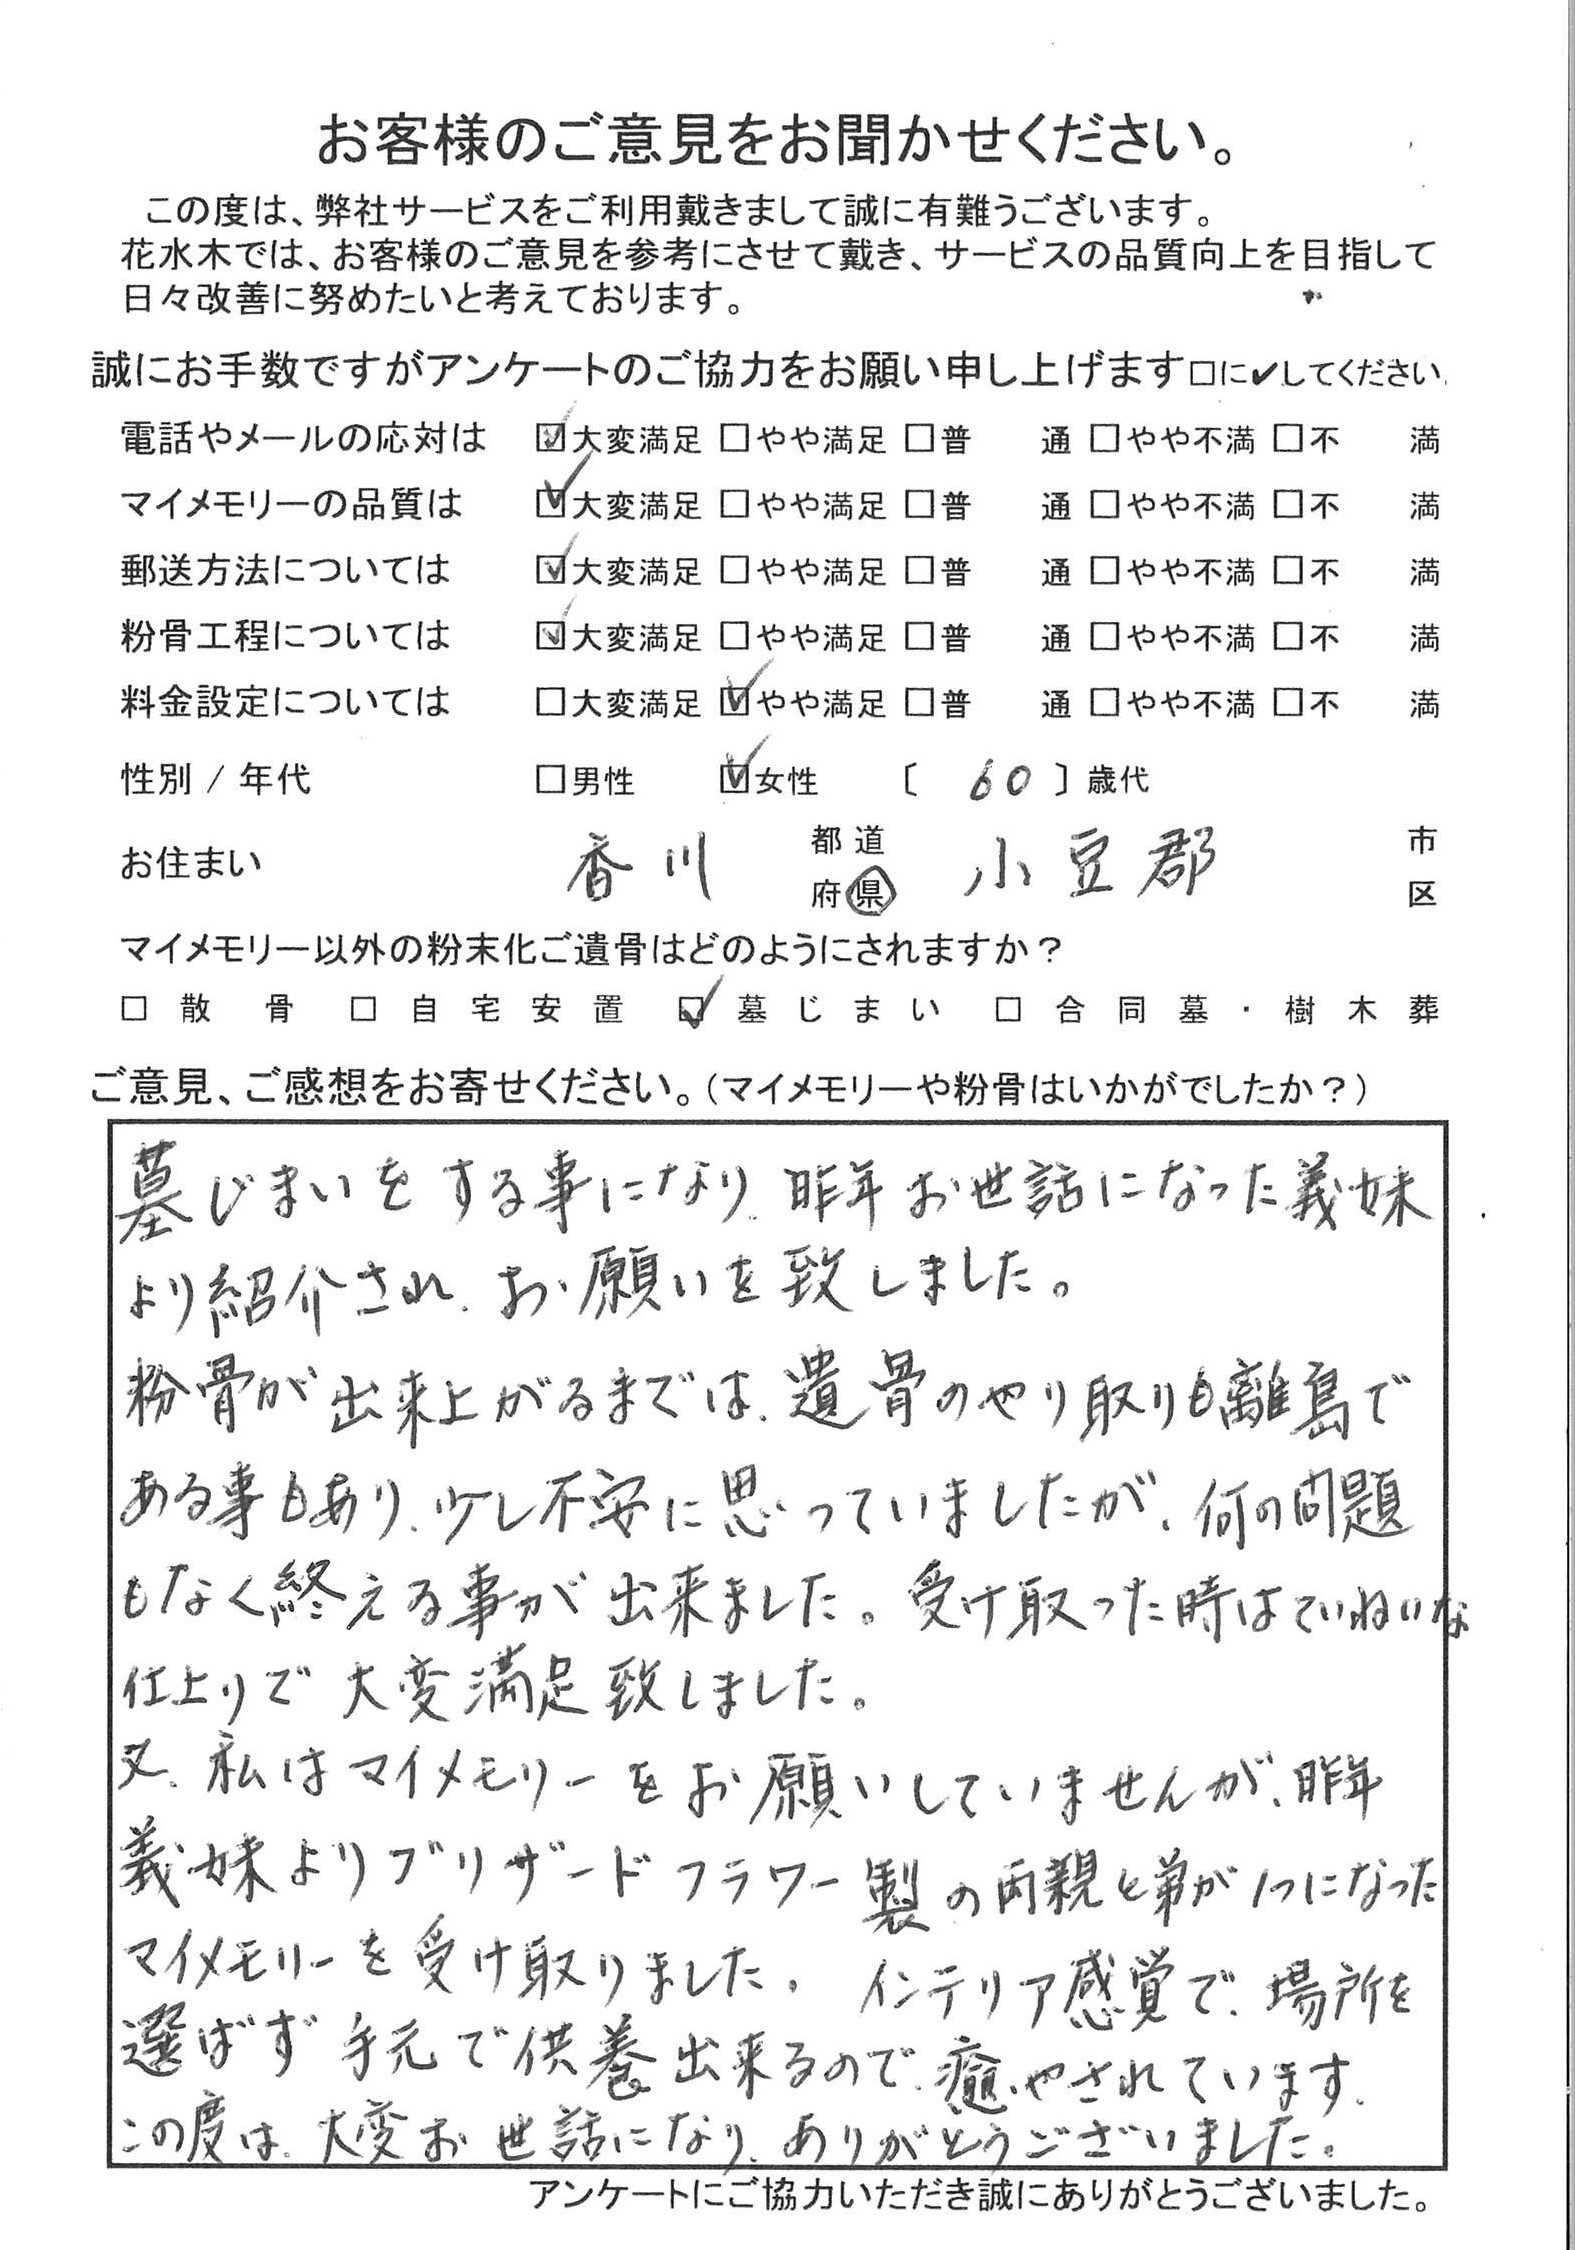 お客様のご意見をお聞かせください。
この度は、弊社サービスをご利用戴きまして誠に有難うございます。
花水木では、お客様のご意見を参考にさせて戴き、サービスの品質向上を目指して
日々改善に努めたいと考えております。
誠にお手数ですがアンケートのご協力をお願い申し上げます□に✔してください。
電話やメールの応対は ☑大変満足 □やや満足 □普 通 □やや不満 □不 満
マイメモリーの品質は ☑大変満足 □やや満足 □普 通 □やや不満 □不 満
郵送方法については ☑大変満足 □やや満足 □普 通 □やや不満 □不 満
粉骨工程については ☑大変満足 □やや満足 □普 通 □やや不満 □不 満
料金設定については □大変満足 ☑やや満足 □普 通 □やや不満 □不 満
性別 / 年代 □男性 ☑女性 〔 60 〕歳代
お住まい 香川 都道府県 小豆郡 市区
マイメモリー以外の粉末化ご遺骨はどのようにされますか？
□ 散骨 □ 自宅安置 ☑ 墓じまい □ 合同墓・樹木葬
ご意見、ご感想をお寄せください。（マイメモリーや粉骨はいかがでしたか？）
墓じまいをする事になり、昨年お世話になった義妹
より紹介され、お願いを致しました。
粉骨が出来上がるまでは、遺骨のやり取りも離島で
ある事もあり、少し不安に思っていましたが、何の問題
もなく終える事が出来ました。受け取った時はていねいな
仕上りで大変満足致しました。
又、私はマイメモリーをお願いしていませんが、昨年
義妹よりブリザードフラワー製の両親と弟が1つになった
マイメモリーを受け取りました。インテリア感覚で、場所を
選ばず手元で供養出来るので、癒やされています。
この度は、大変お世話になり、ありがとうございました。
アンケートにご協力いただき誠にありがとうございました。